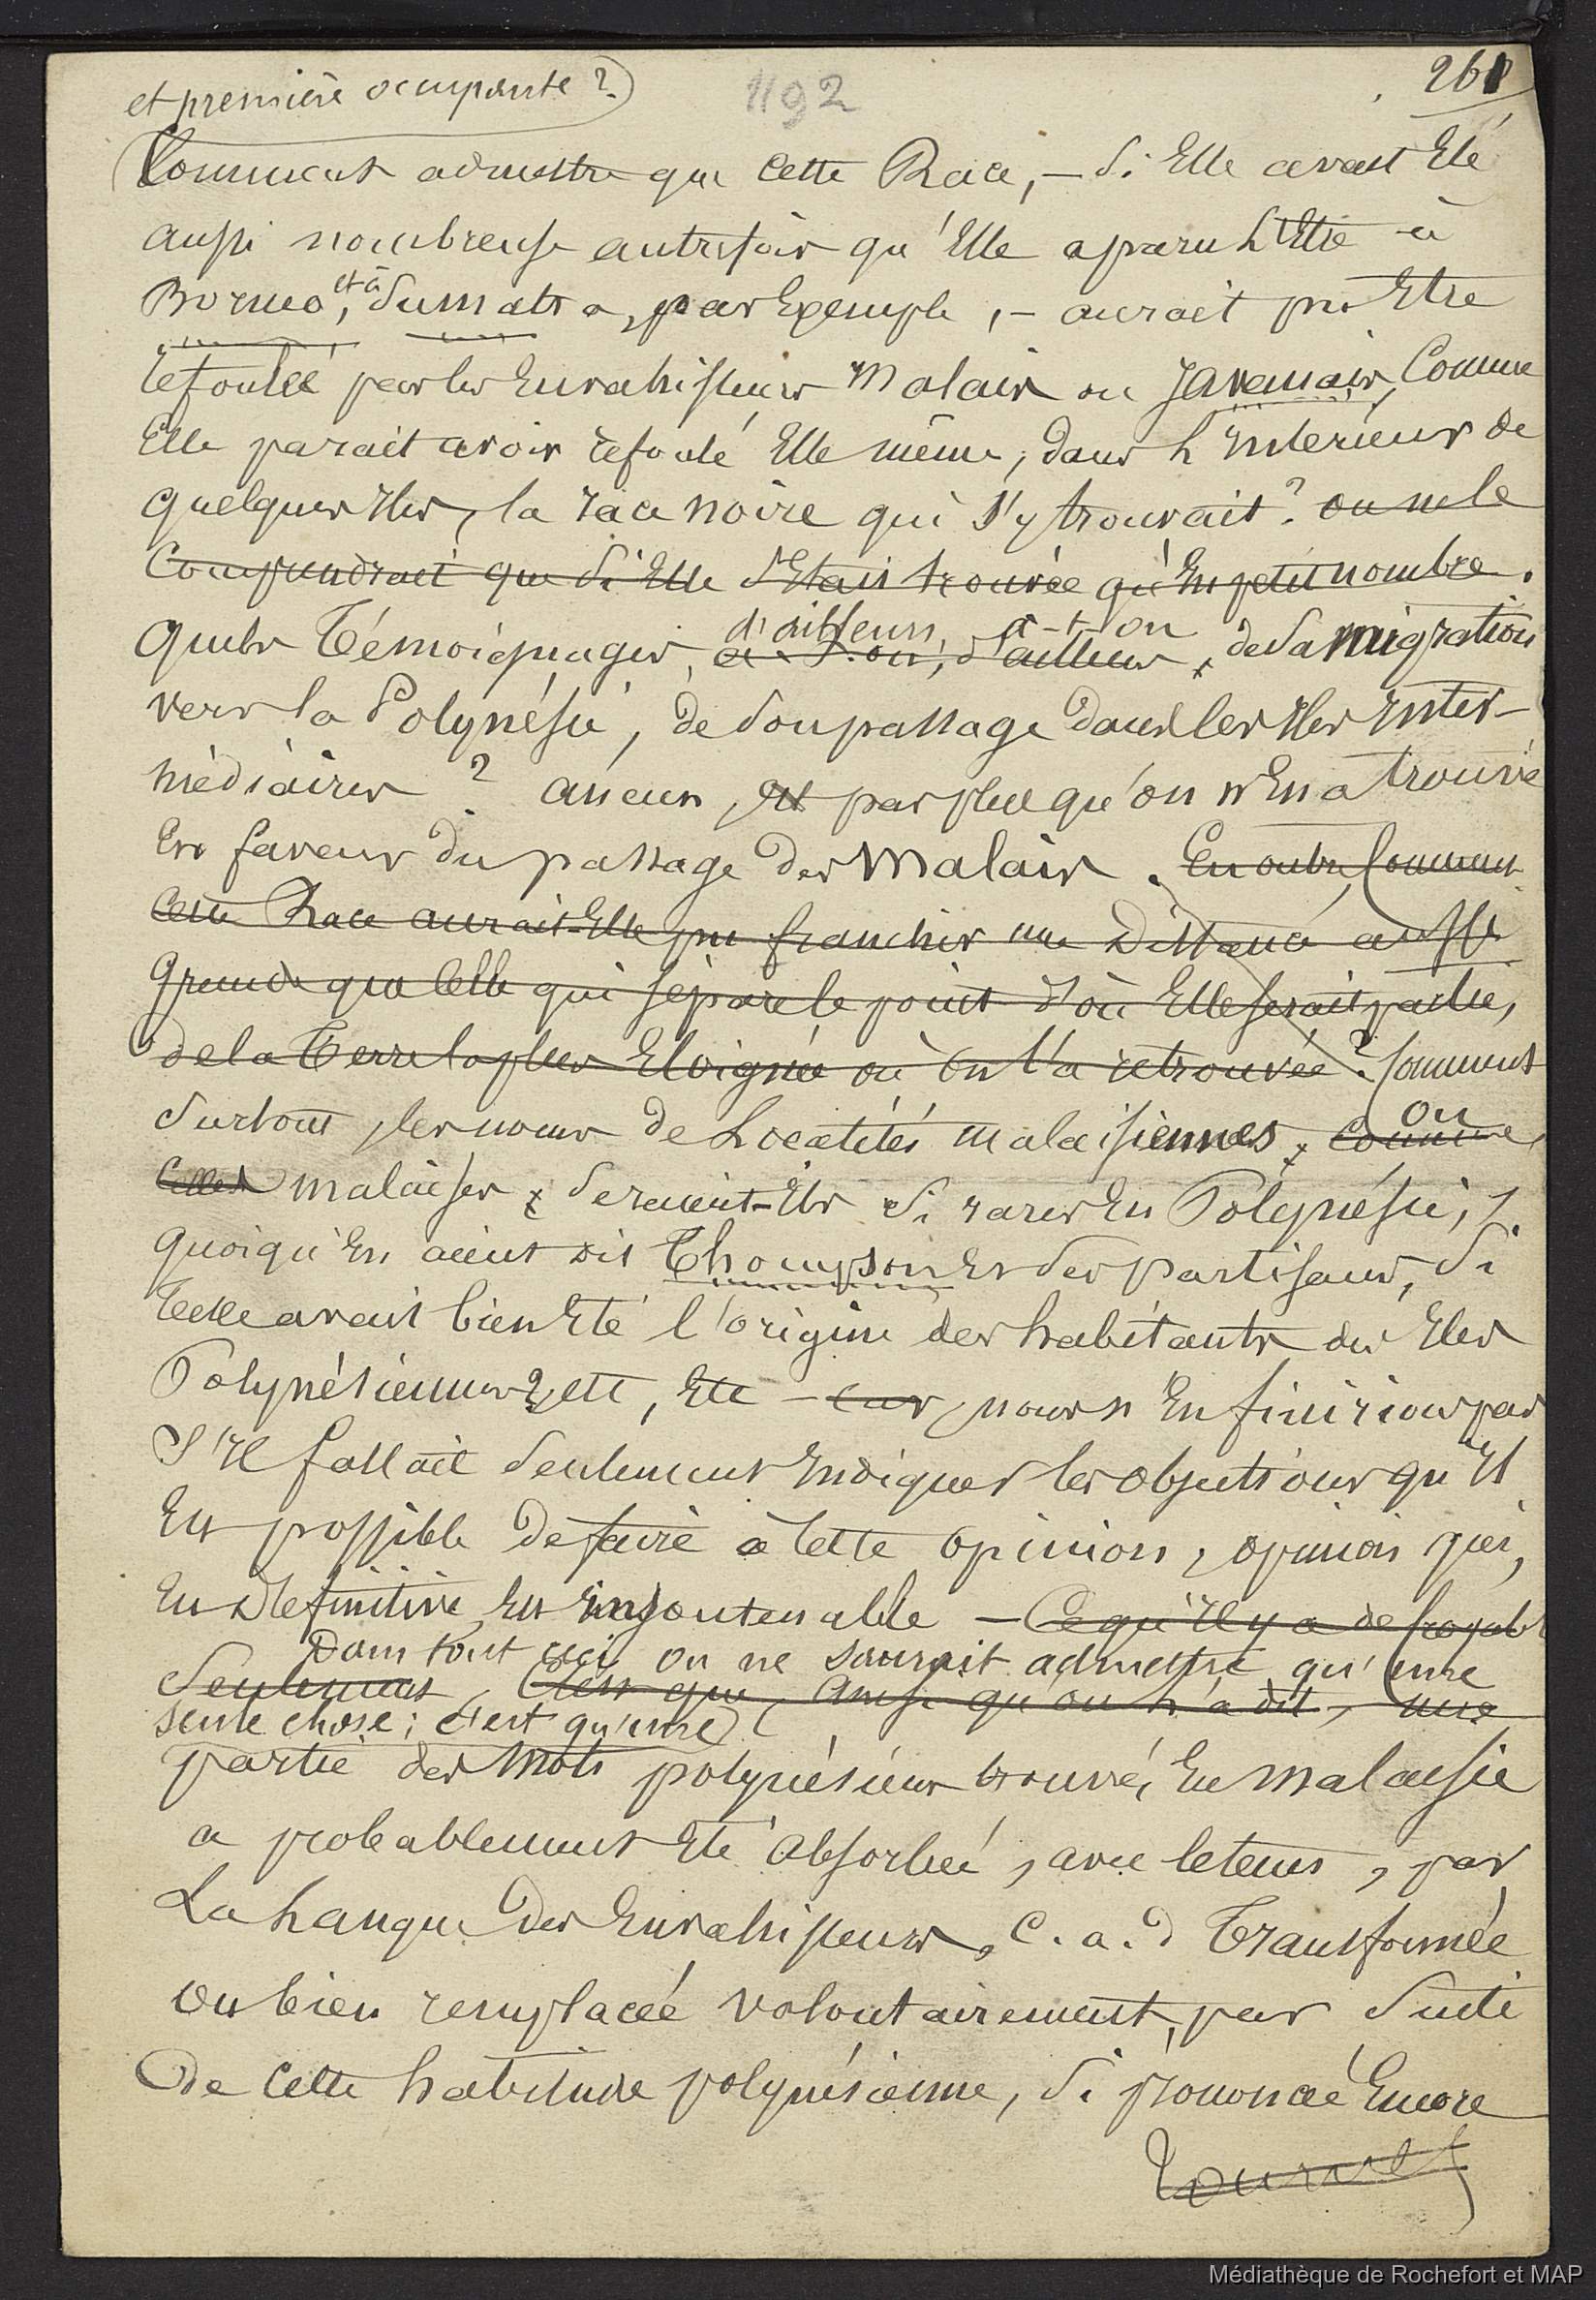 et première occupante ?
1192
261
Comment admettre que cette Race, – si Elle avait Eté
aussi nombreuse autrefois qu'Elle a paru l'Etre à
Borneo, et à Sumatra, par Exemple, – aurait pu Etre
refoulée par les Envahisseurs Malais ou Javanais, Comme
Elle parait avoir refoulé Elle même, dans l'Interieur de
quelques Iles, la race noire qui s'y trouvait ? on ne le
Comprendrait que si Elle s'Etait trouvée qu'En petit nombre.
d'ailleurs, a-t-on
quels Témoignages, a-t-on, d'ailleurs, de sa migration
vers la Polynésie, de son passage dans les Iles Inter-
médiaires ? aucun, Et pas plus qu'on n'En a trouvé
En faveur du passage des Malais. En outre, Comment
Cette Race aurait-Elle pu franchir une Distance aussi
Grande que Celle qui sépare le point d'où Elle serait partie,
de la Terre la plus Eloignée où on l'a retrouvée ? Comment
ou
Surtout, les noms de Localités malaisiennes, Comme
Celles malaises, seraient-Ils si rares En Polynésie,
quoiqu'En aient dit Thompson Et ses partisans, si
telle avait bien Eté l'origine des habitants des Iles
Polynésiennes ? ett, Etc – Car, nous n'En finirions pas
S'Il fallait Seulement Indiquer les objections qu'Il
Est possible de faire à Cette opinion, opinion qui,
En Définitive, Est insoutenable – Ce qu'Il y a de probable
Dans tout ceci on ne saurait admettre qu'une
Seulement, C'est que, Ainsi qu'on l'a dit, une
seule chose ; c'est qu'une
partie des Mots polynésiens trouvés En Malaisie
a probablement Eté absorbée, avec le tems, par
La Langue des Envahisseurs, C. a. d Transformée
ou bien remplacée volontairement, par Suite
De Cette habitude polynésienne, si prononcée Encore
Médiathèque de Rochefort et MAP